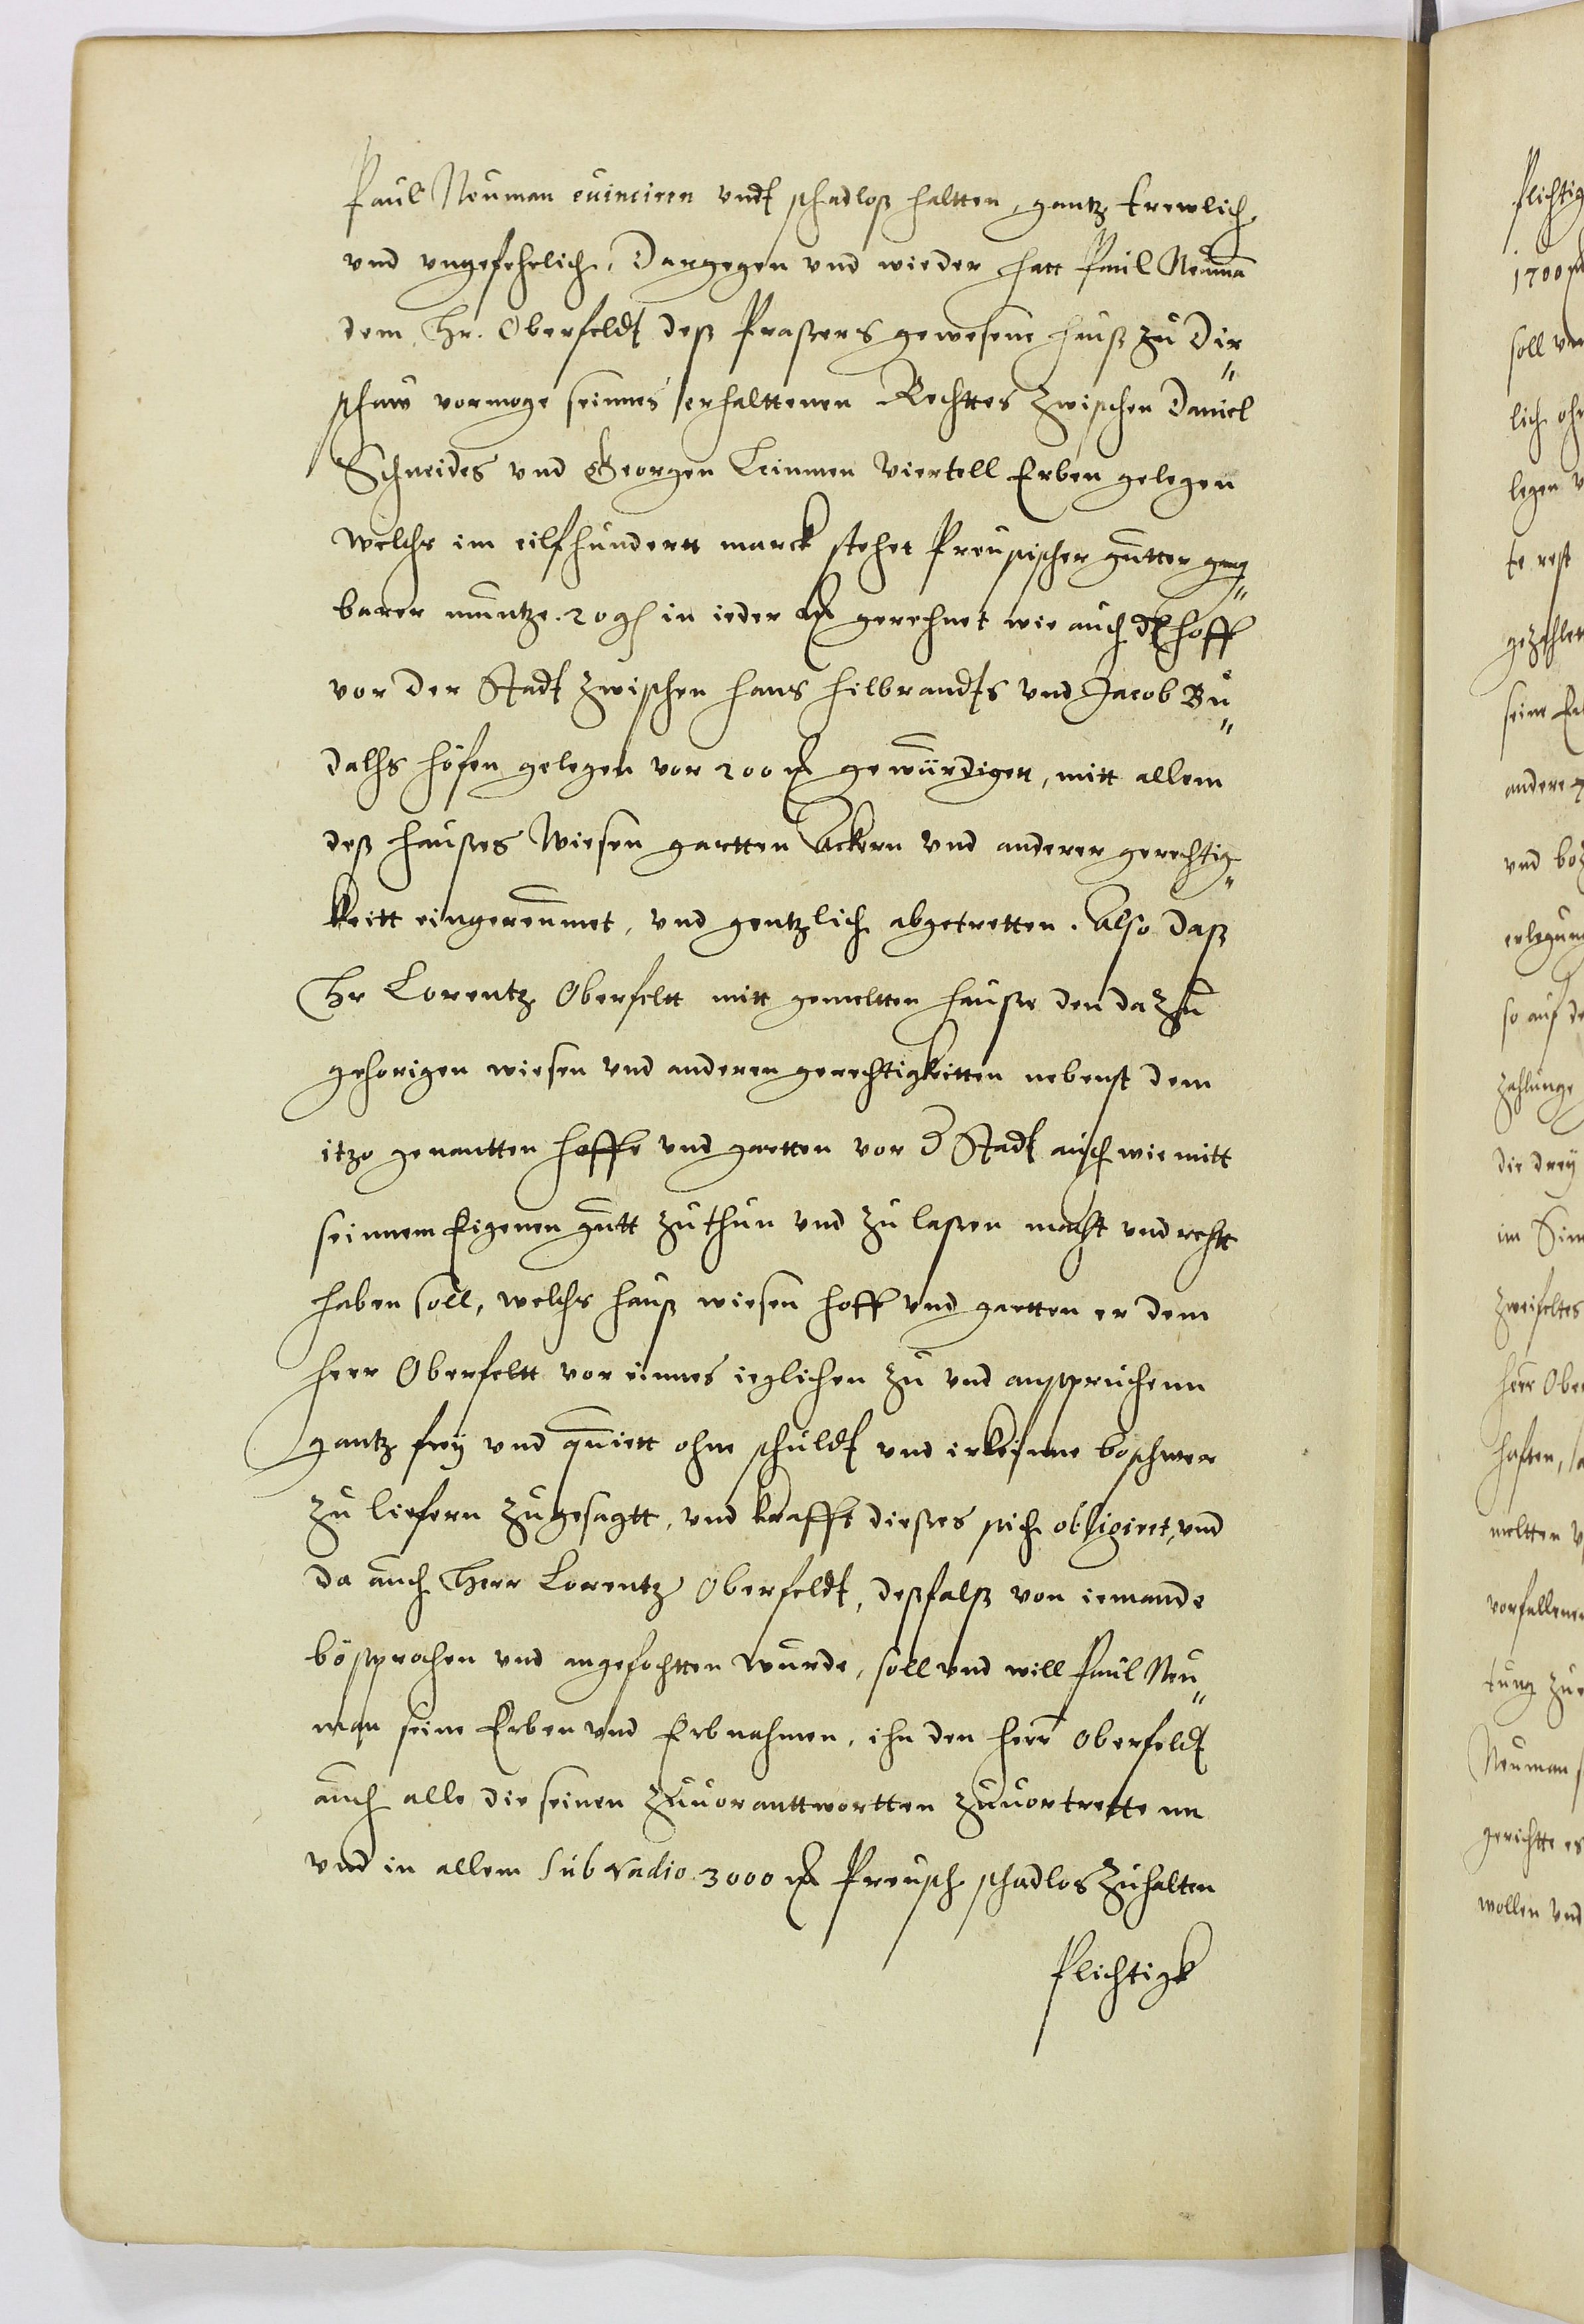 Paul Neuman euinciren vndt schadloß haltten, gantz trewlich
vnd vngefehrlich, Dargegen vnd wieder hatt Paul Neuma
dem Hr. Oberfeldt deß Praßers gewesene hauß zu Dir„
schaw vormoge seinnes erhalttenen Rechttes zwischen Daniel
Schneides vnd Georgen Leinnen Viertell Erben gelegen
welchs im eilfhundert marck stehet Preusischer gutter gang„
barer muntze 20 gs in ieder mk gerechnet wie auch dz hoff
vor der Stadt zwischen hans hilbrandts vnd Jacob Bu„
dalhs höfen gelegen vor 200 mk gewürdigett, mitt allem
deß haußes Wiesen gartten Ackern vnd anderer gerechtig„
keitt eingereumet, vnd gentzlich abgetretten. Also daß
Hr Lorentz Oberfeltt mitt gemeltten hauße den da zu
gehorigen wiesen vnd anderen gerechtigkeitten nebenst dem
itzo genantten hoffe vnd gartten vor d Stadt auch wie mitt
seinnem Eigenen gutt zu thun vnd zu laßen macht vnd recht
haben soll, welchs hauß wiesen hoff vnd gartten er dem
herr Oberfeltt vor einnes ieglichen zu vnd ansprüchenn
gantz frey vnd quiett ohne schuldt vnd irkeinne beschwer
zu liefern zugesagtt, vnd krafft dießes sich obligiret, vnd
da auch Herr Lorentz Oberfeldt, deßfalß von iemande
bösprochen vnd angefochtten wurde, soll vnd will Paul Neu„
man seine Erben vnd Erbnahmen, ihn den herr Oberfeldt
auch alle die seinen zuuoranttwortten zuuortrette nn
vnd in allem sub vadio 3000 mk Preusch schadlos zuhalten
Plichtigk